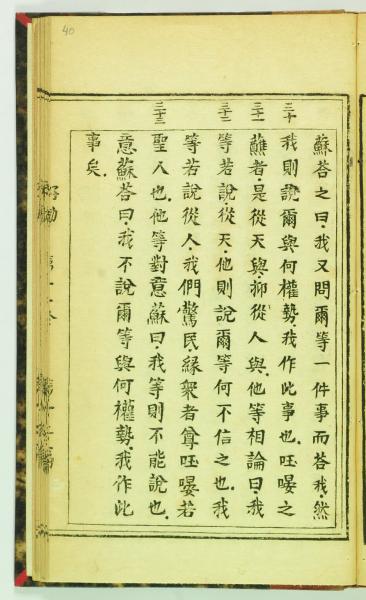 40
蘇荅之曰我又問爾等一件事而荅我然
三十
我則說爾與何權勢我作此事也呸㬫之
三十一
蘸者是從天與抑從人與他等相論曰我
三十二
等若說從天他則說爾等何不信之也我
等若說從人我們驚民緣衆者尊呸㬫若
三十三
聖人也他等對意蘇曰我等則不能說也
意蘇荅曰我不說爾等與何權勢我作此
事矣